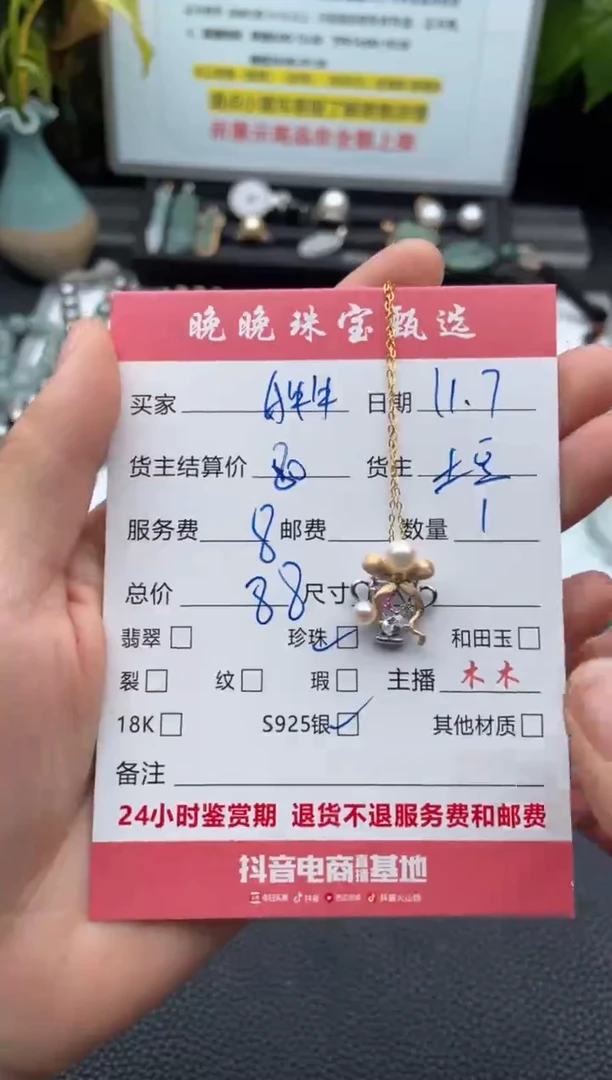 晚晚珠宝甄选
买家 日期 11.7
货主结算价 80 货主
服务费 8 邮费 数量 1
总价 88 尺寸
翡翠 珍珠 和田玉
裂 纹 瑕 主播 木木
18K S925银 其他材质
备注
24小时鉴赏期 退货不退服务费和邮费
抖音电商直播基地
今日头条 抖音 西瓜视频 抖音火山版